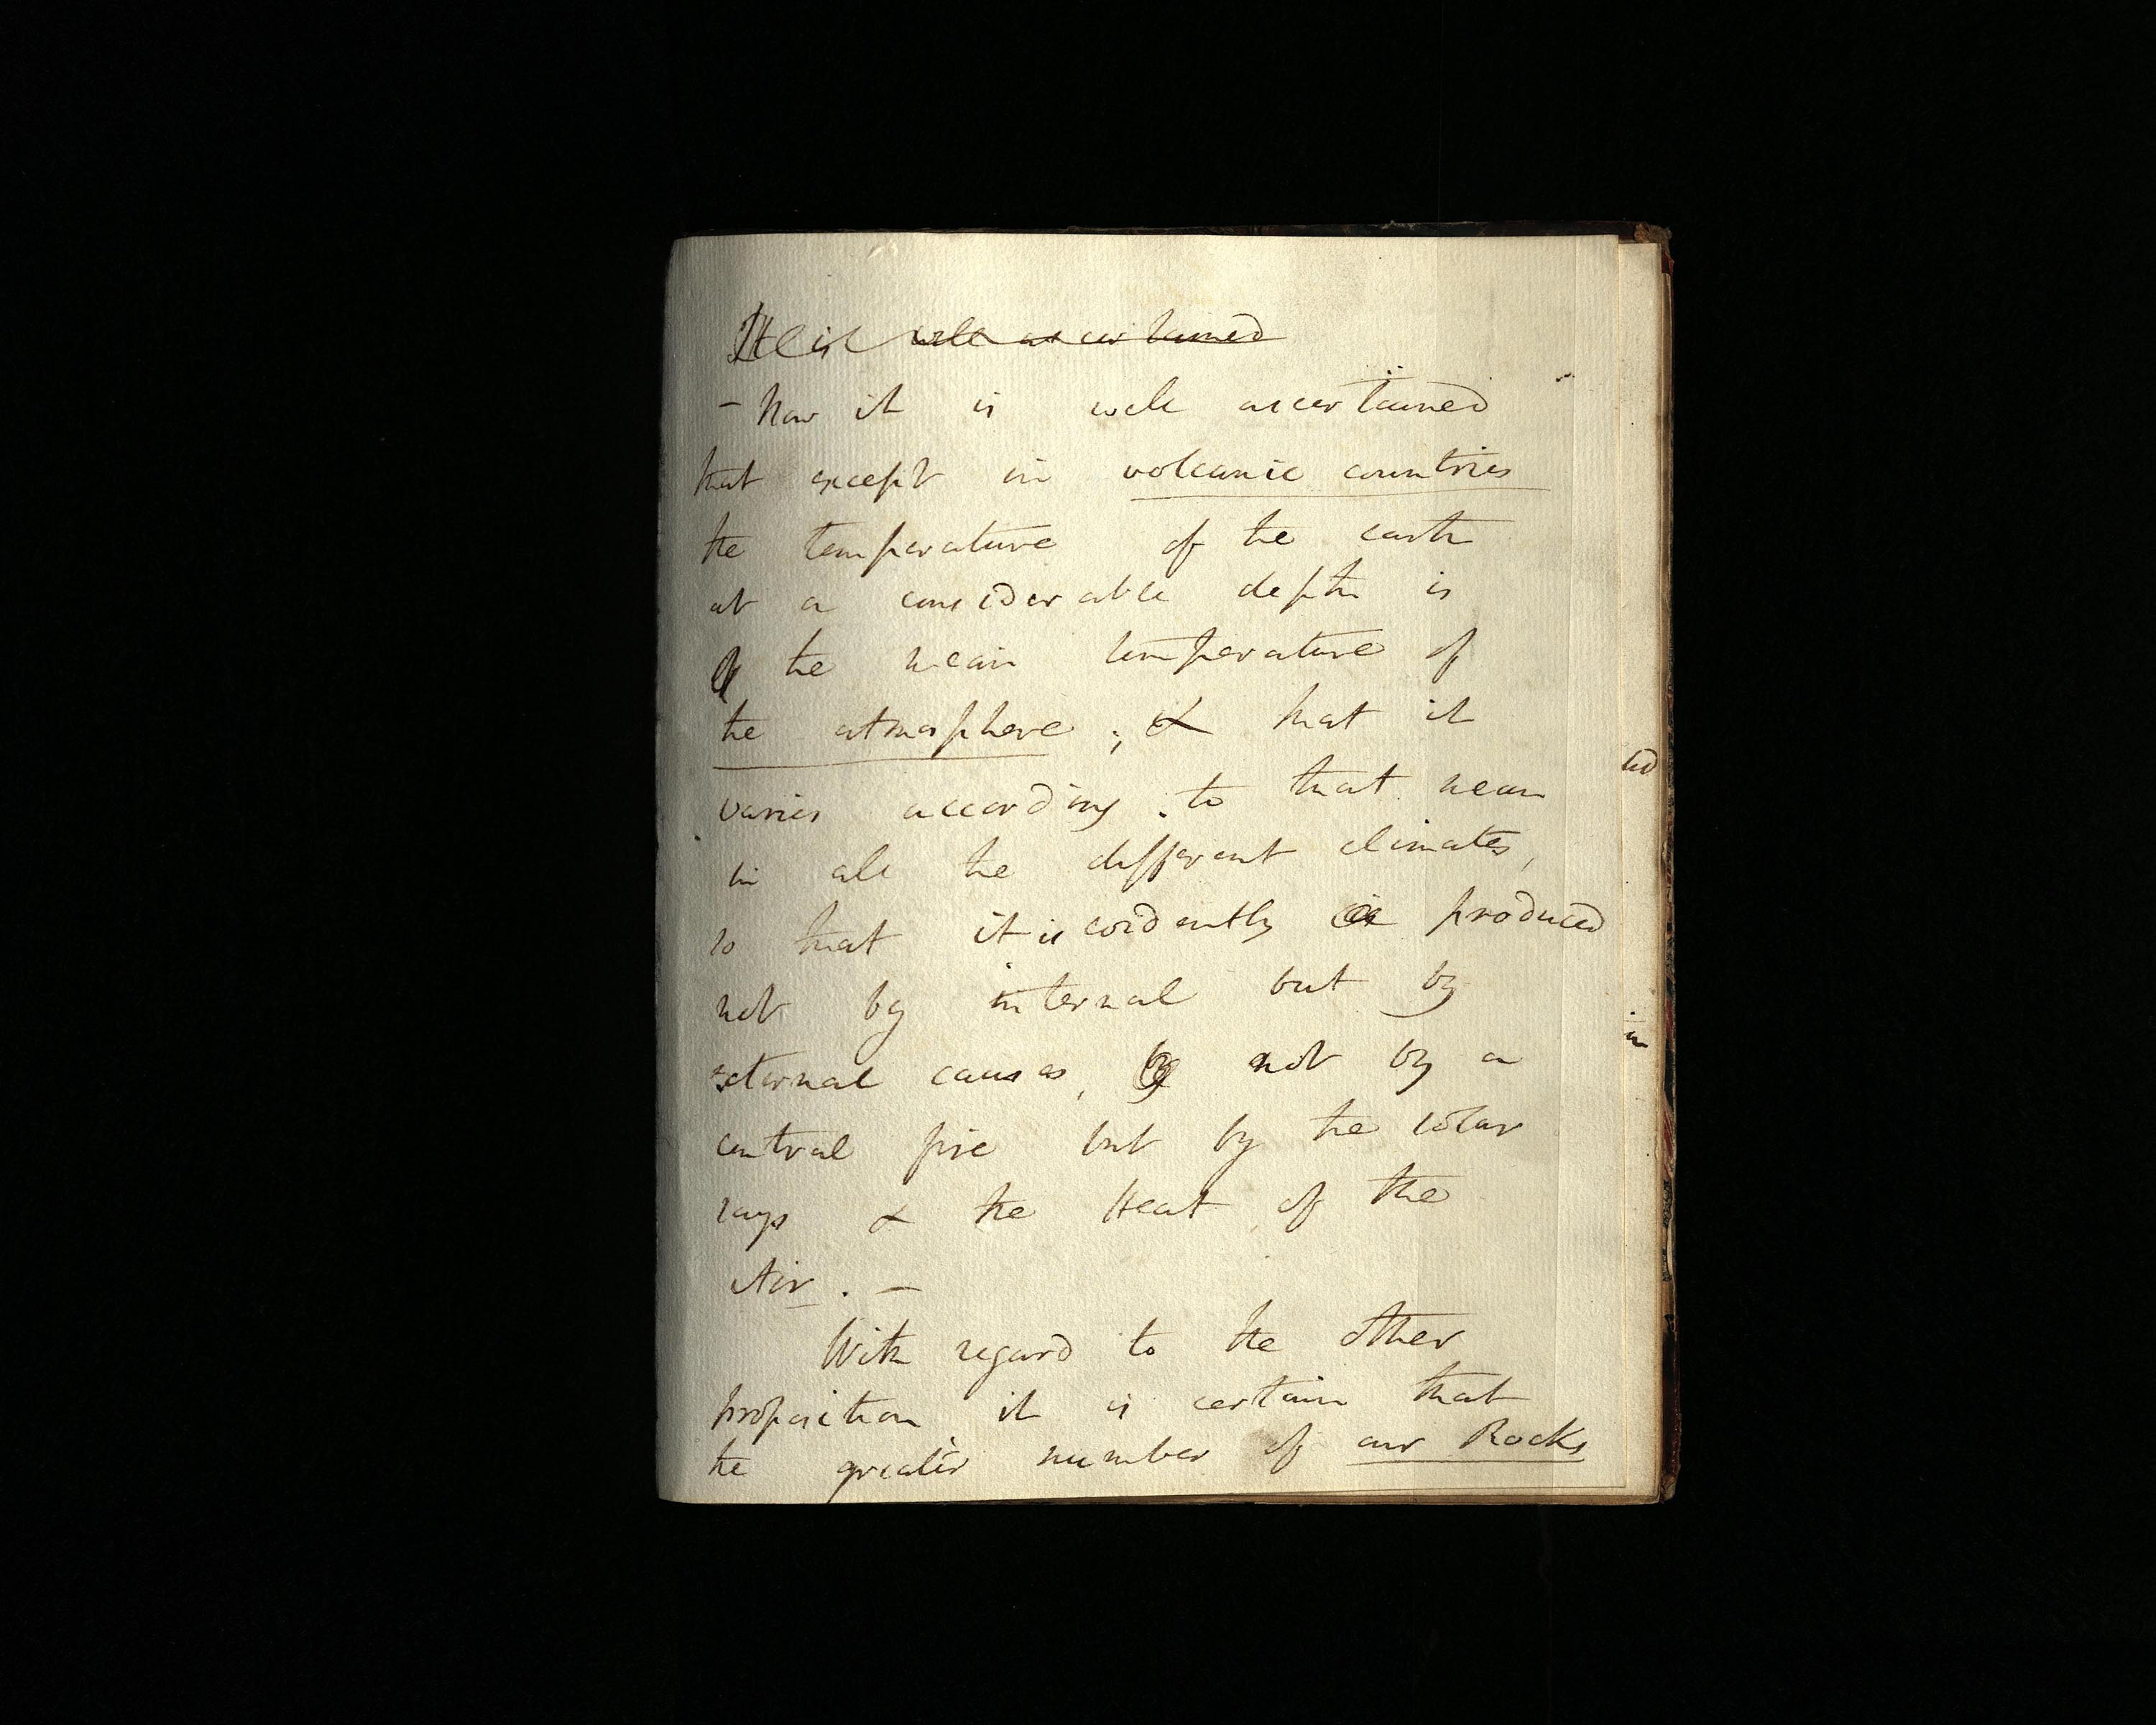 It is well ascertained
- Now it is well ascertained
that except in volcanic countries
the temperature of the earth
at a considerable depth is
the mean temperature of
the atmosphere; & that it
varies according to that mean
in all the different climates,
so that it is evidently produced
not by internal but by
external causes, not by a
central fire but by the solar
rays & the Heat of the
Air. -
With regard to the other
proposition it is certain that
the greater number of our Rocks
in